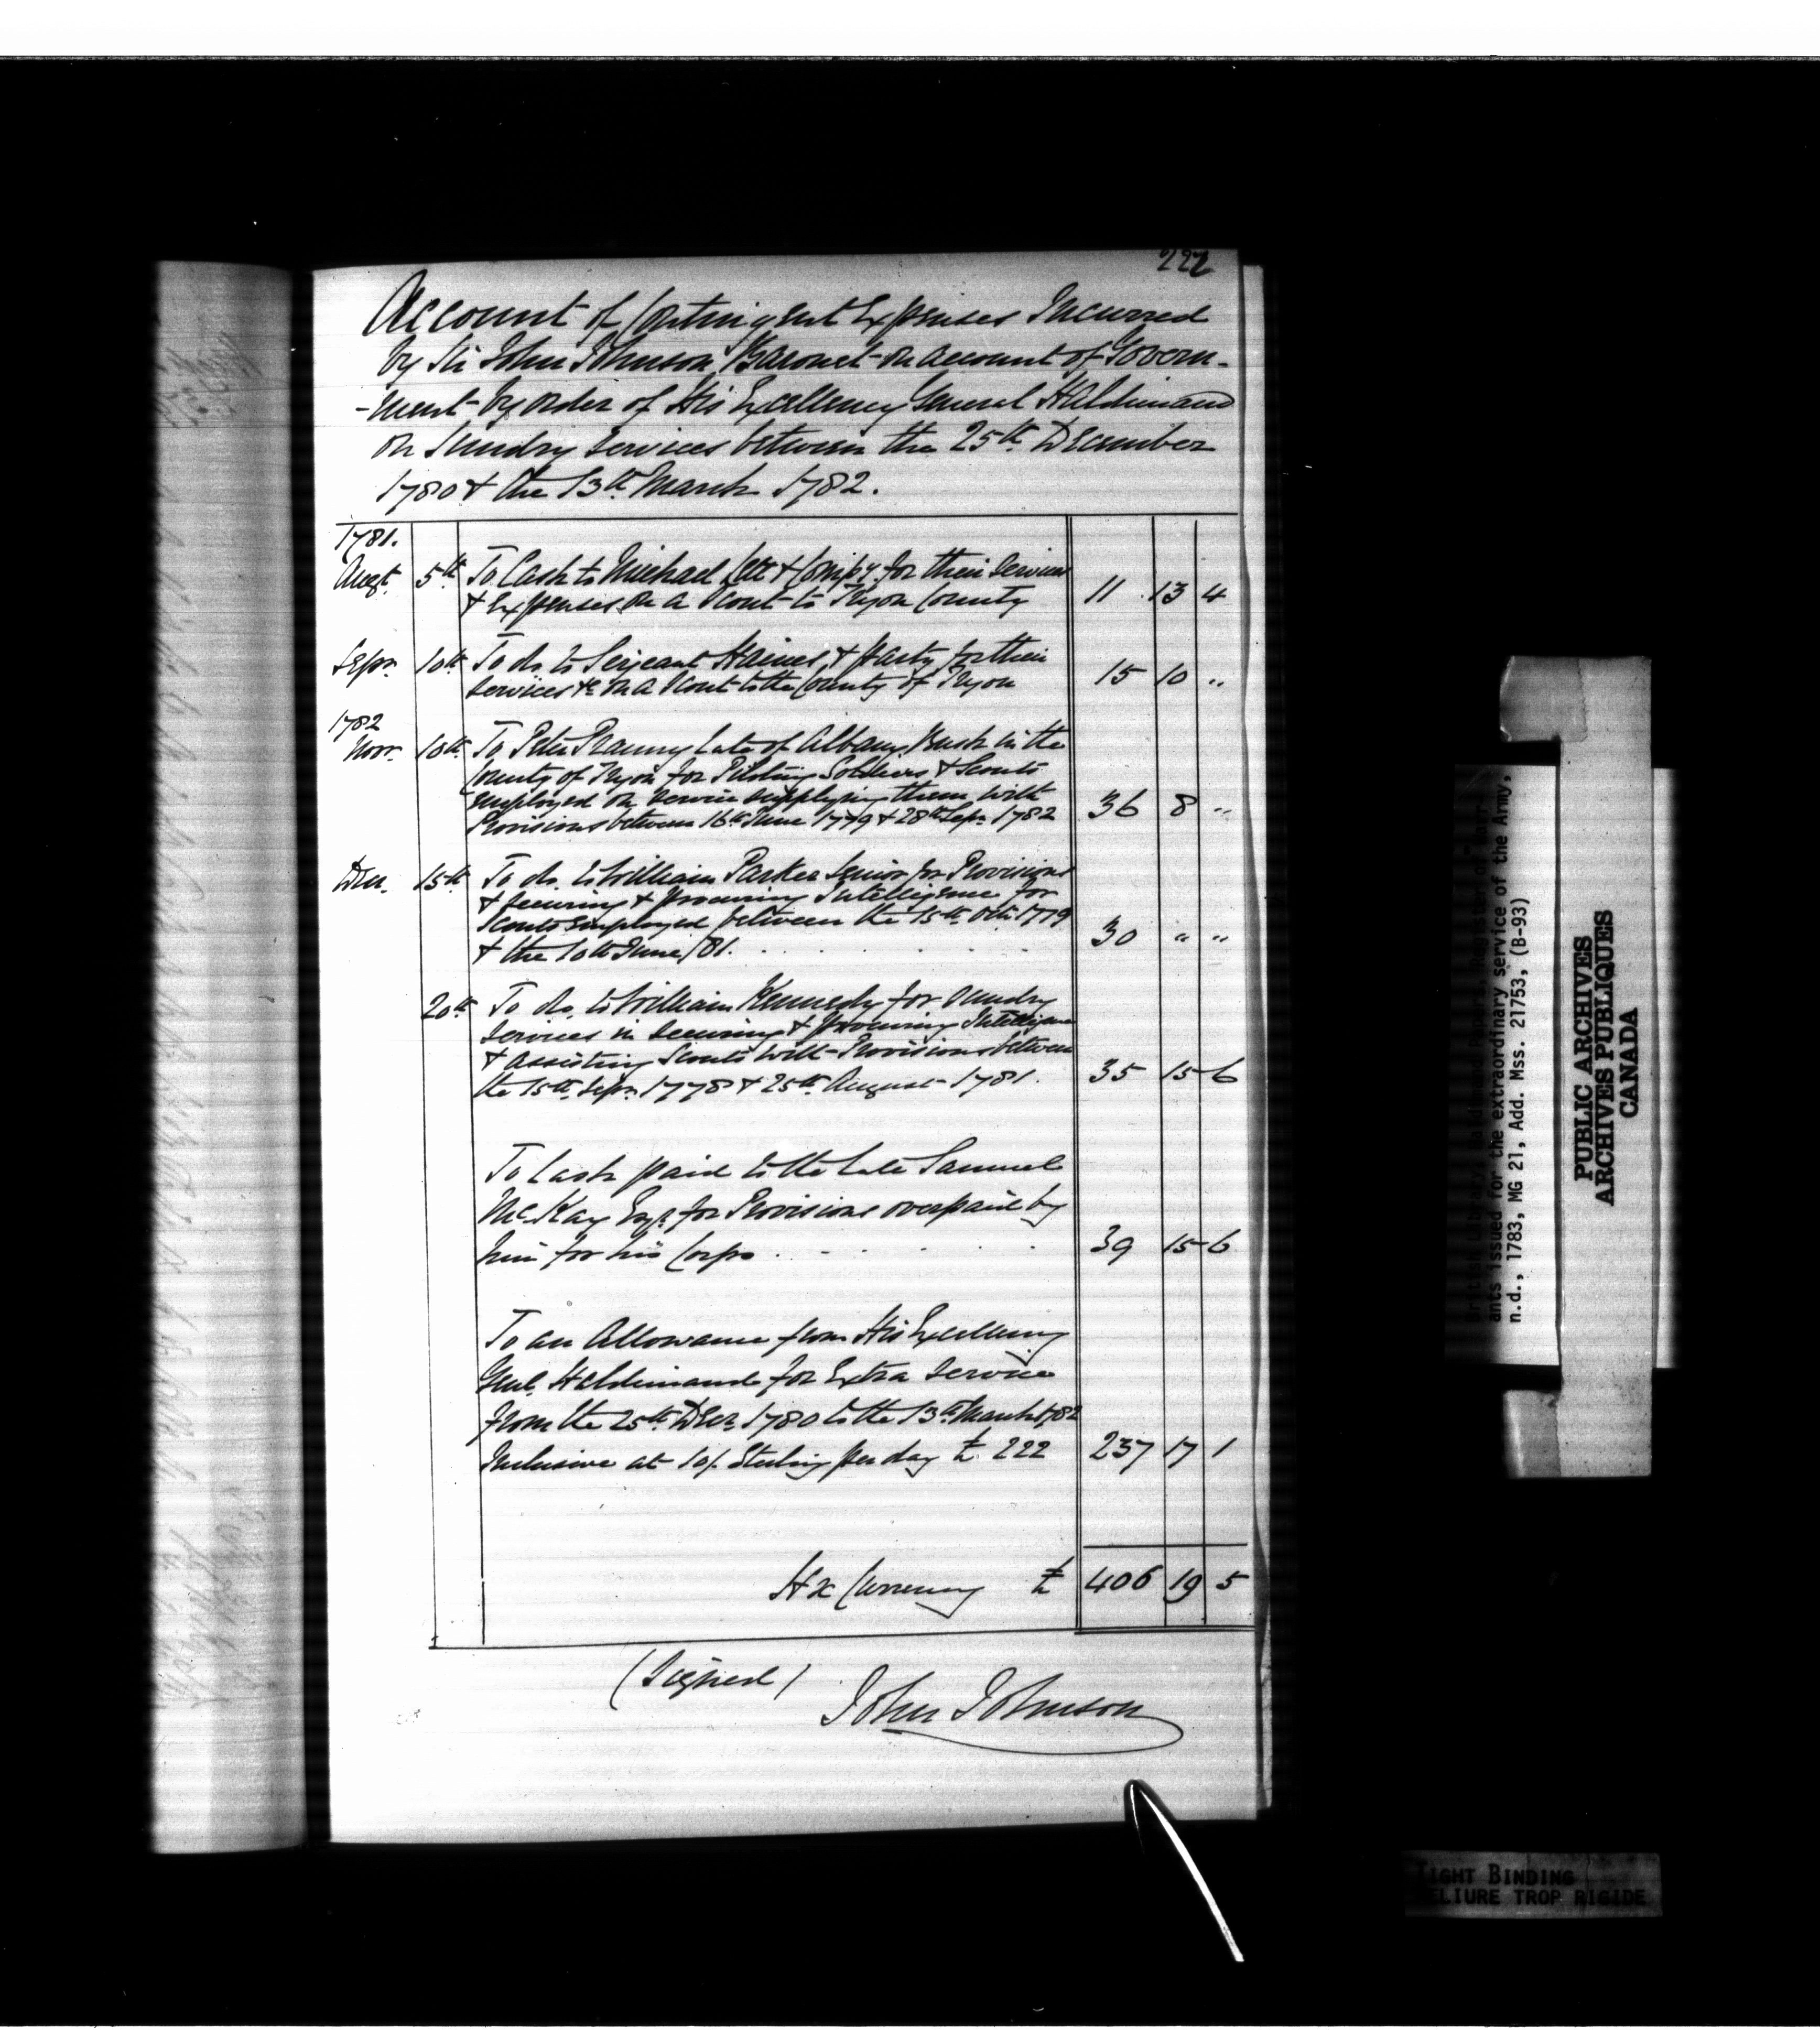 222
Account of Contingent Expenses Incurred
by Sir John Johnson Baronet on account of Govern-
-ment by order of His Excellency General Haldimand
on Sundry Services between the 25th December
1780 & the 13th March 1782.
1781.
Augt. 5th To Cash to Michael & Compy. for their Services
& Expenses on a Scout to Tryon County 11 13 4
Sepr. 10th To do. to Serjeant Haines & party for their
Services &c on a Scout to the County of Tryon 15 10 "
1782
Novr. 10th To Peter Late of Albany Bush in the
County of Tryon for Piloting Soldiers & Scouts
employed on Service supplying them with
Provisions between 16th June 1779 & 28th Sepr. 1782 36 8 "
Decr. 15th To do. to William Parker Senior for Provisions
& securing & procuring Intelligence for
Scouts employed between the 15th Octr. 1779
& the 10th June /81. 30 " "
20th To do. to William Kennedy for sundry
Services in securing & procuring Intelligence
& assisting Scouts with Provisions between
the 15th Sepr. 1778 & 25th August 1781. 35 15 6
To Cash paid to the Late Samuel
McKay Esqr. for Provisions overpaid by
him for his Corps 39 15 6
To an Allowance from His Excellency
Genl. Haldimand for Extra Service
from the 25th Decr. 1780 to the 13th March 1782
Inclusive at 10/. Sterling per day £ 222 237 17 1
Hx Currency £ 406 19 5
(Signed) John Johnson
British Library, Haldimand Papers, Register of Warr-
ants issued for the extraordinary service of the Army,
n.d., 1783, MG 21, Add. Mss. 21753, (B-93)
PUBLIC ARCHIVES
ARCHIVES PUBLIQUES
CANADA
TIGHT BINDING
RELIURE TROP RIGIDE